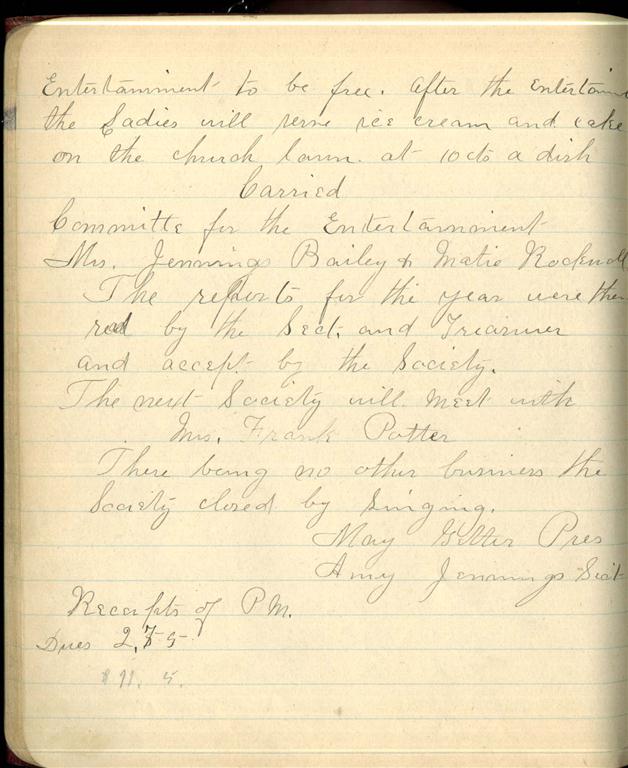 Entertainment to be free. After the Entertainm
the Ladies will serve ice cream and cake
on the church lawn. at 10cts a dish
Carried
Committe for the Entertainment
Mrs. Jennings Bailey & Matie
The reports for the year were then
read by the Sect. and Treasurer
and accept by the Society.
The next Society will meet with
Mrs. Frank Potter
There being no other business the
Society closed by Singing.
May Pres
Amy Jennings Sect
Receipts of P.M.
Dues 2,